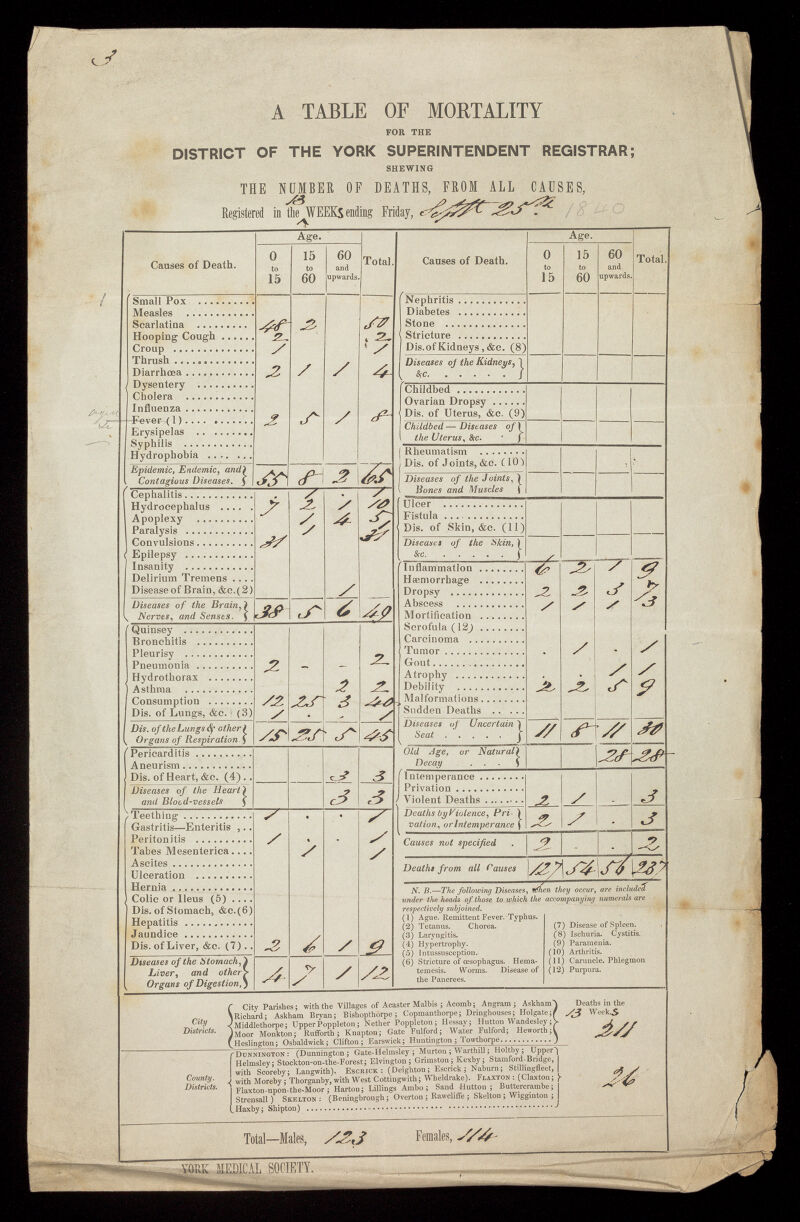 3
A TABLE OF MORTALITY
FOR THE
DISTRICT OF THE YORK SUPERINTENDENT REGISTRAR;
SHEWING
THE NUMBER OF DEATHS, FROM ALL CAUSES,
Registered in the 13 WEEKS ending Friday, Septr 25th 1840
Causes of Death. Age. 0 to 15 15 to 60 60 and upwards. Total.
Small Pox
Measles
Scarlatina 48 2 50
Hooping Cough 2 2
Croup 1 1
Thrush
Diarrhœa 2 1 1 4
Dysentery
Cholera
Influenza
Fever (1) 2 5 1 8
Erysipelas
Syphilis
Hydrophobia
Epidemic, Endemic, and
Contagious Diseases. 55 8 2 65
Cephalitis . 1 . 1
Hydrocephalus 7 2 1 10
Apoplexy 1 4 5
Paralysis 1 1
Convulsions 31 31
Epilepsy
Insanity
Delirium Tremens
Disease of Brain, &c. (2) 1
Diseases of the Brain,
Nerves, and Senses. 38 5 6 49
Quinsey
Bronchitis
Pleurisy
Pneumonia 2 - - 2
Hydrothorax
Asthma 2 2
Consumption 12 25 3 40
Dis. of Lungs, &c. (3) 1 . . 1
Dis. of the Lungs & other
Organs of Respiration 15 25 5 45
Pericarditis
Aneurism
Dis. of Heart, &c. (4) 3 3
Diseases of the Heart
and Blood-vessels 3 3
Teething 1 . . 1
Gastritis—Enteritis
Peritonitis 1 . . 1
Tabes Mesenterica 1 1
Ascites
Ulceration
Hernia
Colic or Ileus (5)
Dis. of Stomach, &c. (6)
Hepatitis
Jaundice
Dis. of Liver, &c. (7) 2 6 1 9
Diseases of the Stomach,
Liver, and other
Organs of Digestion, 4 7 1 12
Causes of Death. Age. 0 to 15 15 to 60 60 and upwards. Total.
Nephritis
Diabetes
Stone
Stricture
Dis. of Kidneys, &c. (8)
Diseases of the Kidneys,
&c.
Childbed
Ovarian Dropsy
Dis. of Uterus, &c. (9)
Childbed — Diseases of
the Uterus, &c.
Rheumatism
Dis. of Joints, &c. (10)
Diseases of the Joints,
Bones and Muscles
Ulcer
Fistula
Dis. of Skin, &c. (11)
Diseases of the Skin,
&c.
Inflammation 6 2 1 9
Hæmorrhage
Dropsy 2 2 3 7
Abscess 1 1 1 3
Mortification
Scrofula (12)
Carcinoma
Tumor . 1 . 1
Gout
Atrophy . . 1 1
Debility 2 2 5 9
Malformations
Sudden Deaths
Diseases of Uncertain
Seat 11 8 11 30
Old Age, or Natural
Decay 28 28
Intemperance
Privation
Violent Deaths 2 1 . 3
Deaths by Violence, Pri-
vation, or Intemperance 2 1 . 3
Causes not specified 2 . . 2
Deaths from all Causes 127 54 56 237
N. B.—The following Diseases, when they occur, are included
under the heads of those to which the accompanying numerals are
respectively subjoined.
(1) Ague. Remittent Fever. Typhus.
(2) Tetanus. Chorea.
(3) Laryngitis.
(4) Hypertrophy.
(5) Intussusception.
(6) Stricture of œsophagus. Hema-
temesis. Worms. Disease of
the Pancrees.
(7) Disease of Spleen.
(8) Ischuria. Cystitis.
(9) Paramenia.
(10) Arthritis.
(11) Caruncle. Phlegmon
(12) Purpura.
City Districts.
City Parishes; with the Villages of Acaster Malbis; Acomb; Angram; Askham
Richard; Askham Bryan; Bishopthorpe; Copmanthorpe; Dringhouses; Holgate;
Middlethorpe; Upper Poppleton; Nether Poppleton; Hessay; Hutton Wandesley;
Moor Monkton; Rufforth; Knapton; Gate Fulford; Water Fulford; Heworth;
Heslington; Osbaldwick; Clifton; Earswick; Huntington; Towthorpe
Deaths in the
13 Weeks
211
County. Districts.
DUNNINGTON: (Dunnington; Gate-Helmsley; Murton; Warthill; Holtby; Upper
Helmsley; Stockton-on-the-Forest; Elvington; Grimston; Kexby; Stamford-Bridge,
with Scoreby; Langwith). ESCRICK: (Deighton; Escrick; Naburn; Stillingfleet,
with Moreby; Thorganby, with West Cottingwith; Wheldrake). FLAXTON: (Claxton;
Flaxton-upon-the-Moor; Harton; Lillings Ambo; Sand Hutton; Buttercrambe;
Strensall) SKELTON: (Beningbrough; Overton; Rawcliffe; Skelton; Wigginton;
Haxby; Shipton)
26
Total—Males, 123 Females, 114
YORK MEDICAL SOCIETY.